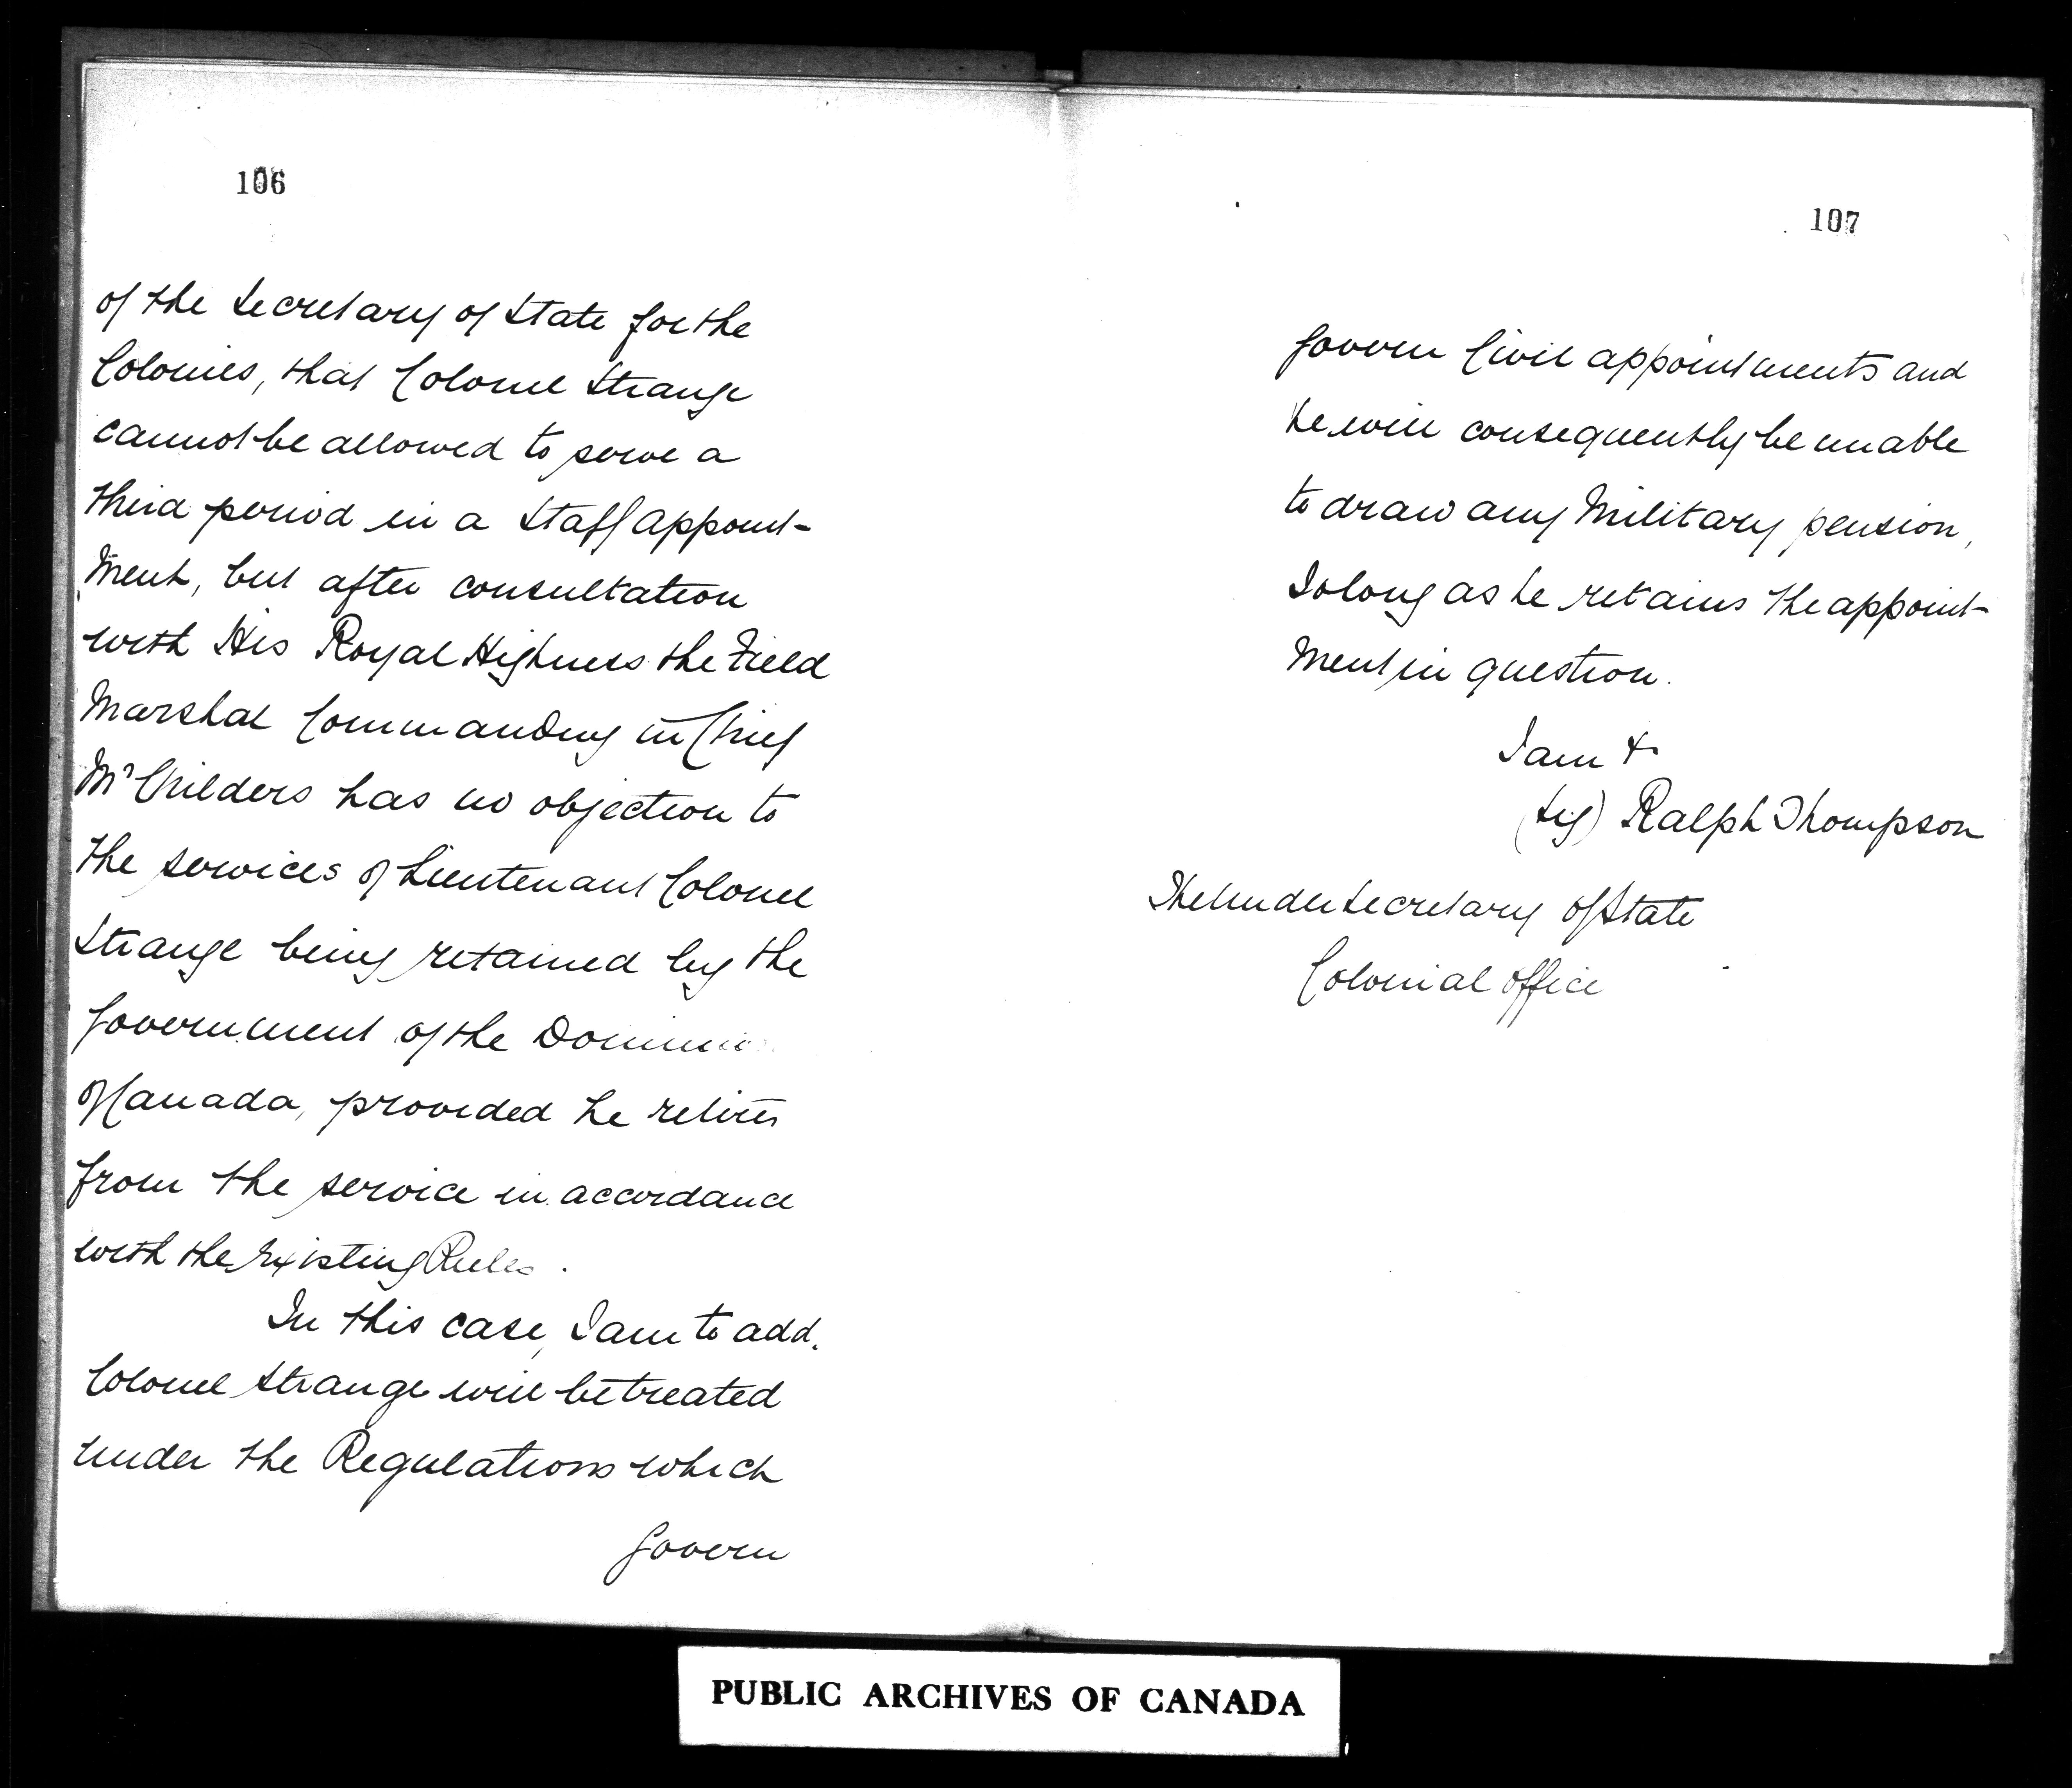 106
of the Secretary of State for the
Colonies, that Colonel Strange
cannot be allowed to serve a
third period in a Staff appoint-
ment, but after consultation
with His Royal Highness the Field
Marshal Commanding in Chief
Mr Childers has no objection to
the services of Lieutenant Colonel
Strange being retained by the
Government of the Dominion
of Canada, provided he retires
from the service in accordance
with the existing Rules.
In this case, I am to add.
Colonel Strange will be treated
under the Regulations which
Govern
107
Govern Civil appointments and
he will consequently be unable
to draw any Military pension,
so long as he retains the appoint-
ment in question.
I am &
(Sig) Ralph Thompson
The Under Secretary of State
Colonial Office
PUBLIC ARCHIVES OF CANADA